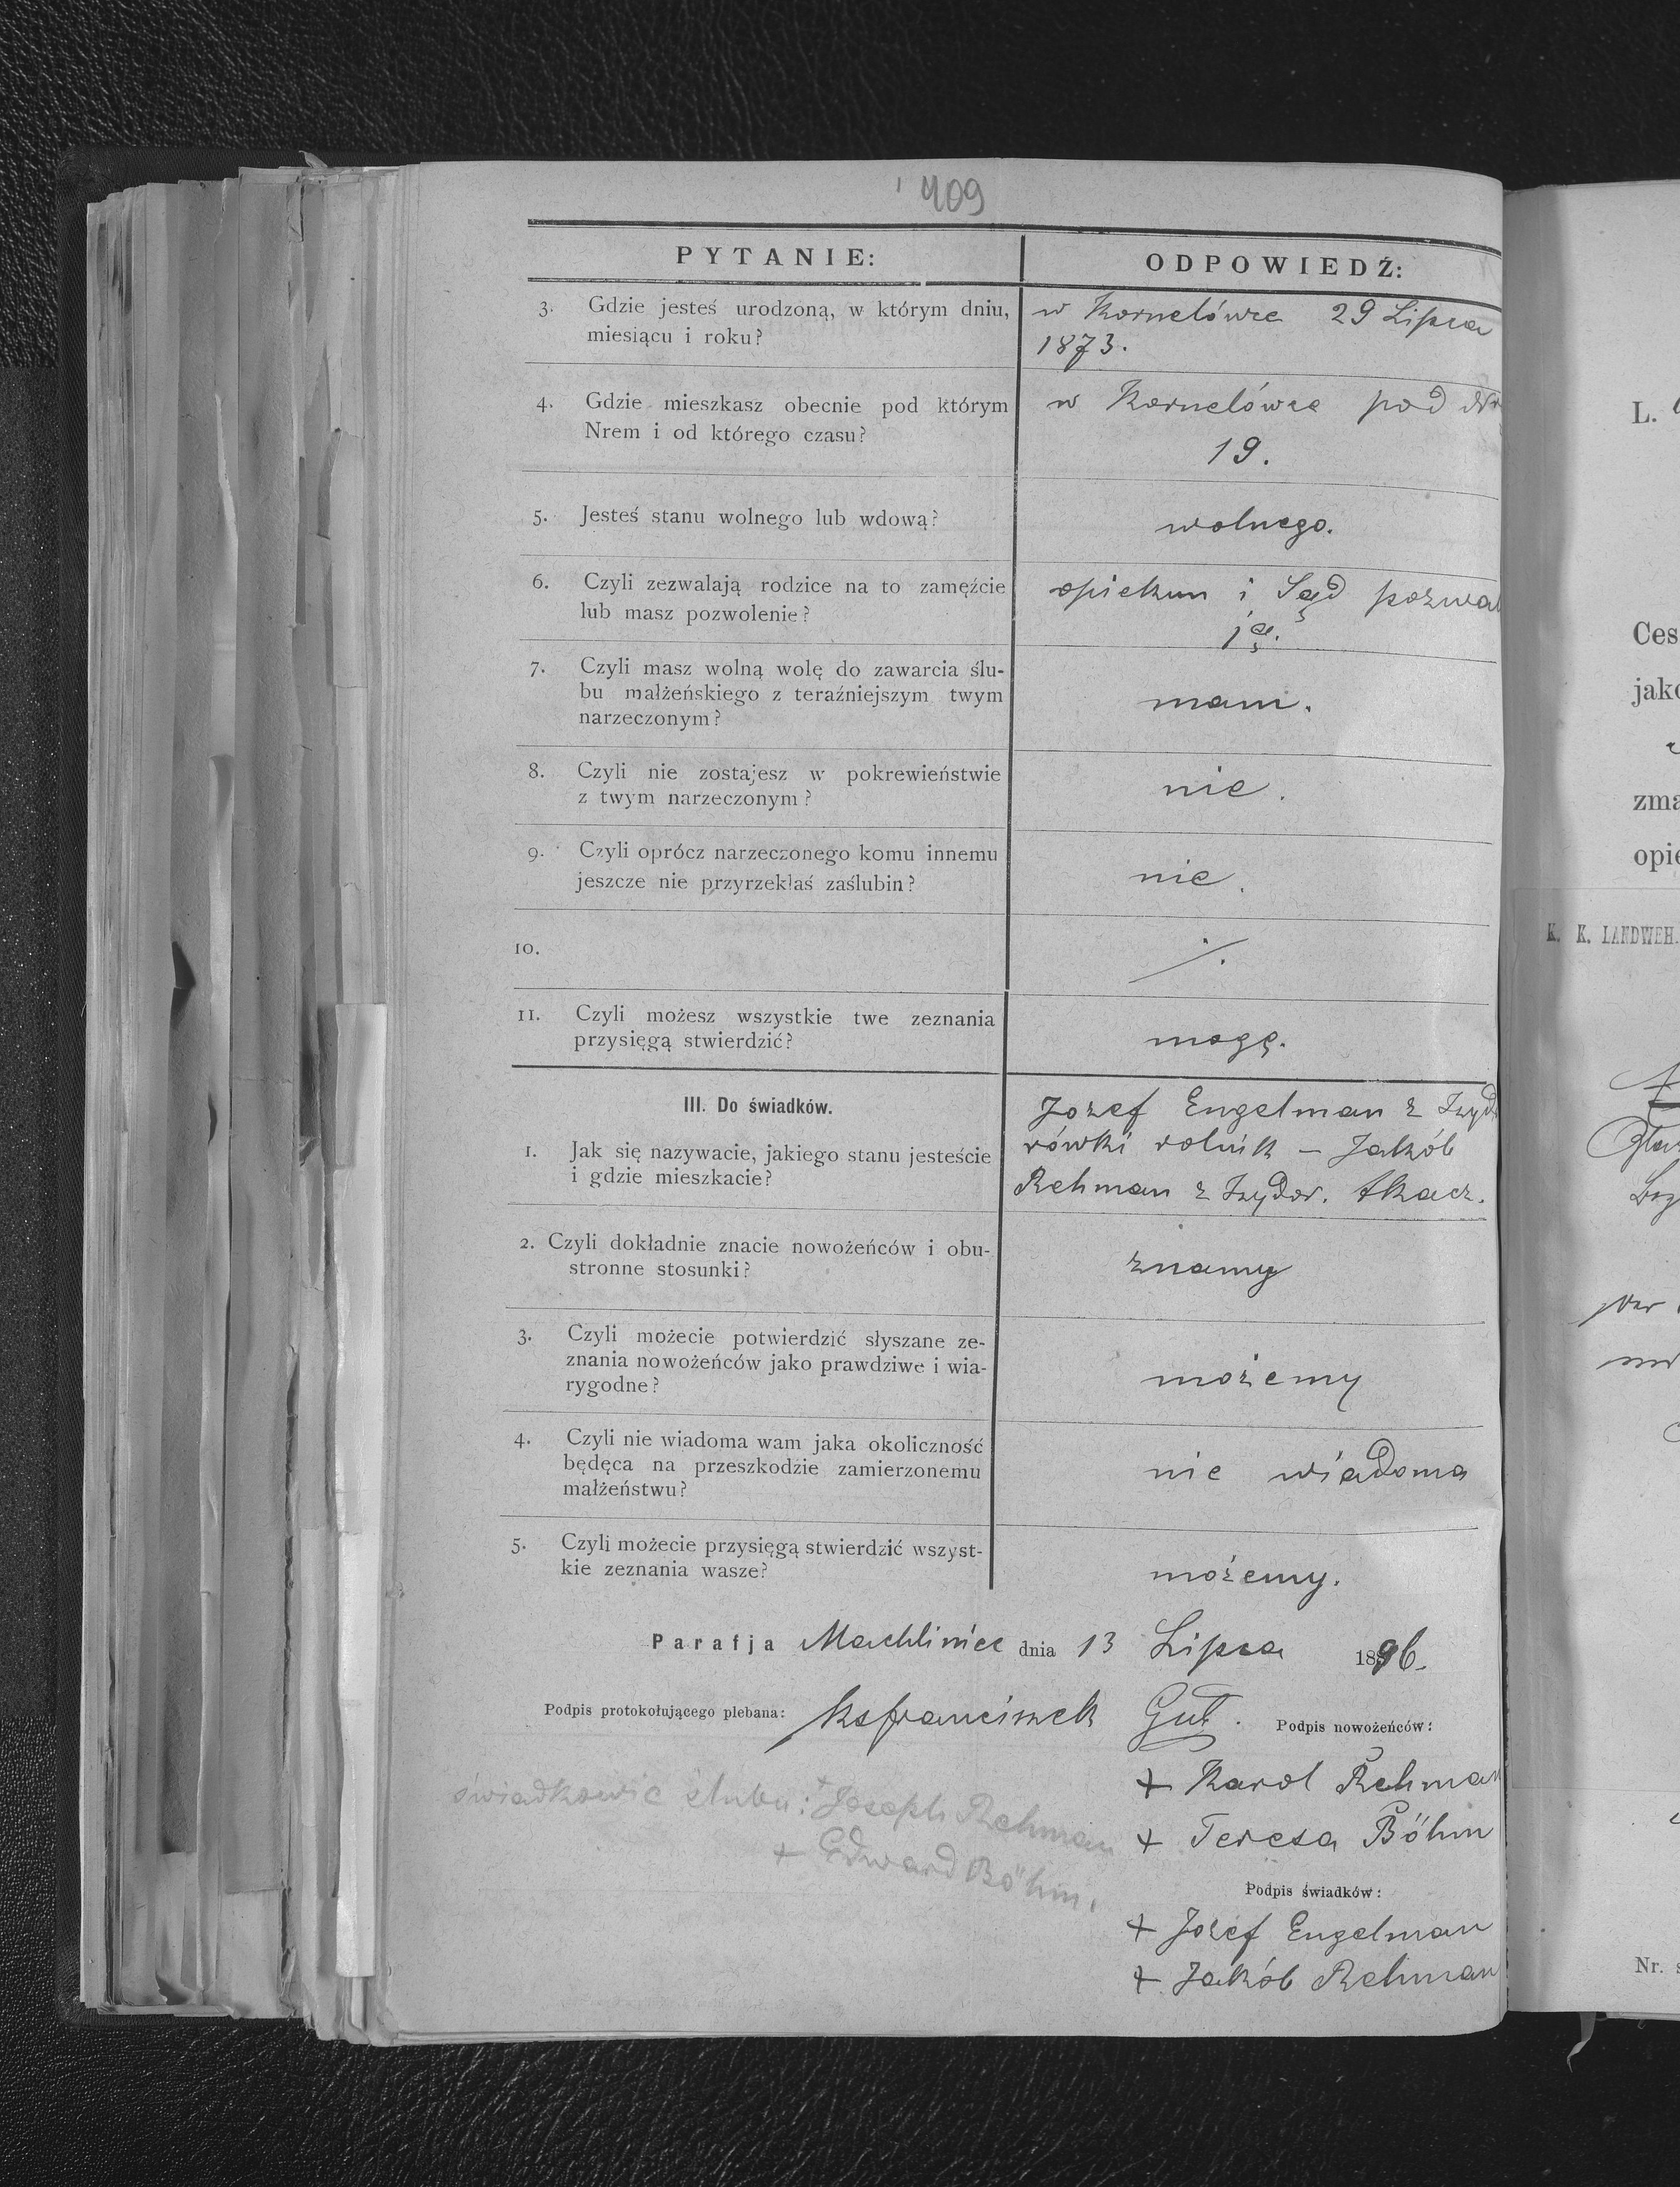 409
PYTANIE:
ODPOWIEDŹ:
3. Gdzie jesteś urodzoną, w którym dniu,
miesiącu i roku?
w Kornelówce 29 Lipca
1873.
4. Gdzie mieszkasz obecnie pod którym
Nrem i od którego czasu?
w Kornelówce pod Nr
19.
5. Jesteś stanu wolnego lub wdową?
wolnego.
6. Czyli zezwalają rodzice na to zamęźcie
lub masz pozwolenie?
opiekun i Sąd pozwal
ją.
7. Czyli masz wolną wolę do zawarcia ślu-
bu małżeńskiego z teraźniejszym twym
narzeczonym?
mam.
8. Czyli nie zostajesz w pokrewieństwie
z twym narzeczonym?
nie.
9. Czyli oprócz narzeczonego komu innemu
jeszcze nie przyrzekłaś zaślubin?
nie.
10.
11. Czyli możesz wszystkie twe zeznania
przysięgą stwierdzić?
mogę.
III. Do świadków.
1. Jak się nazywacie, jakiego stanu jesteście
i gdzie mieszkacie?
Jozef Engelman z Izydo
rówki rolnik – Jakób
Rehman z Izydor. tkacz.
2. Czyli dokładnie znacie nowożeńców i obu-
stronne stosunki?
znamy
3. Czyli możecie potwierdzić słyszane ze-
znania nowożeńców jako prawdziwe i wia-
rygodne?
możemy
4. Czyli nie wiadoma wam jaka okoliczność
będęca na przeszkodzie zamierzonemu
małżeństwu?
nie wiadoma
5. Czyli możecie przysięgą stwierdzić wszyst-
kie zeznania wasze?
możemy.
Parafja Machliniec dnia 13 Lipca 1896.
Podpis protokołującego plebana: Ks Franciszek Gut.
Podpis nowożeńców:
+ Karol Rehman
+ Teresa Böhm
świadkowie ślubu: + Joseph Rehman
+ Edward Böhm.
Podpis świadków:
+ Jozef Engelman
+ Jakób Rehman
L.
Ces
jako
zma
opie
K. K. LANDWEH.
Nr.